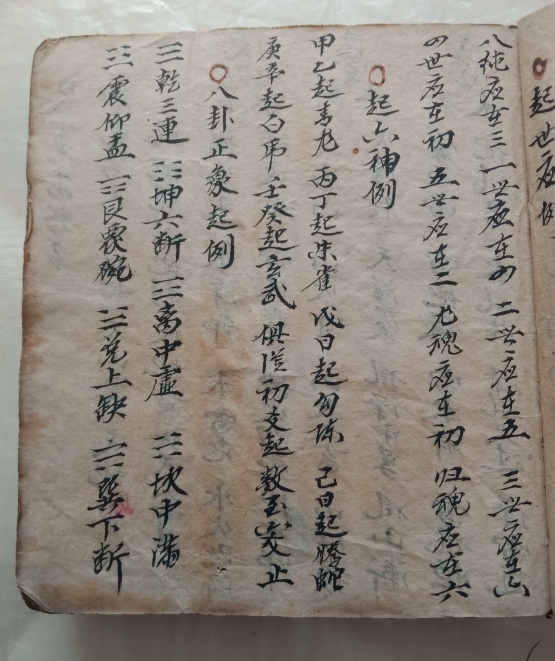 起世应例
八纯应在三 一世应在四 二世应在五 三世应在六
四世应在初 五世应在二 尤魂应在初 归魂应在六
起六神例
甲乙起青尤 丙丁起朱雀 戊日起勾陈 己日起腾蛇
庚辛起白虎 壬癸起玄武 俱从初支起数至六爻止
八卦正象起例
☰乾三連 ☷坤六断 ☲离中虚 ☵坎中满
☳震仰盂 ☶艮覆碗 ☱兑上缺 ☴巽下断